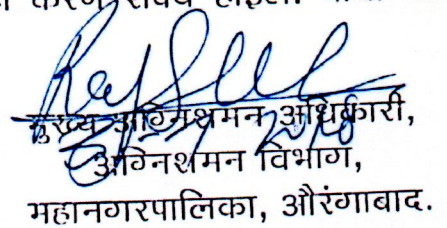 मुख्य अग्निशमन अधिकारी,
अग्निशमन विभाग,
महानगरपालिका, औरंगाबाद.